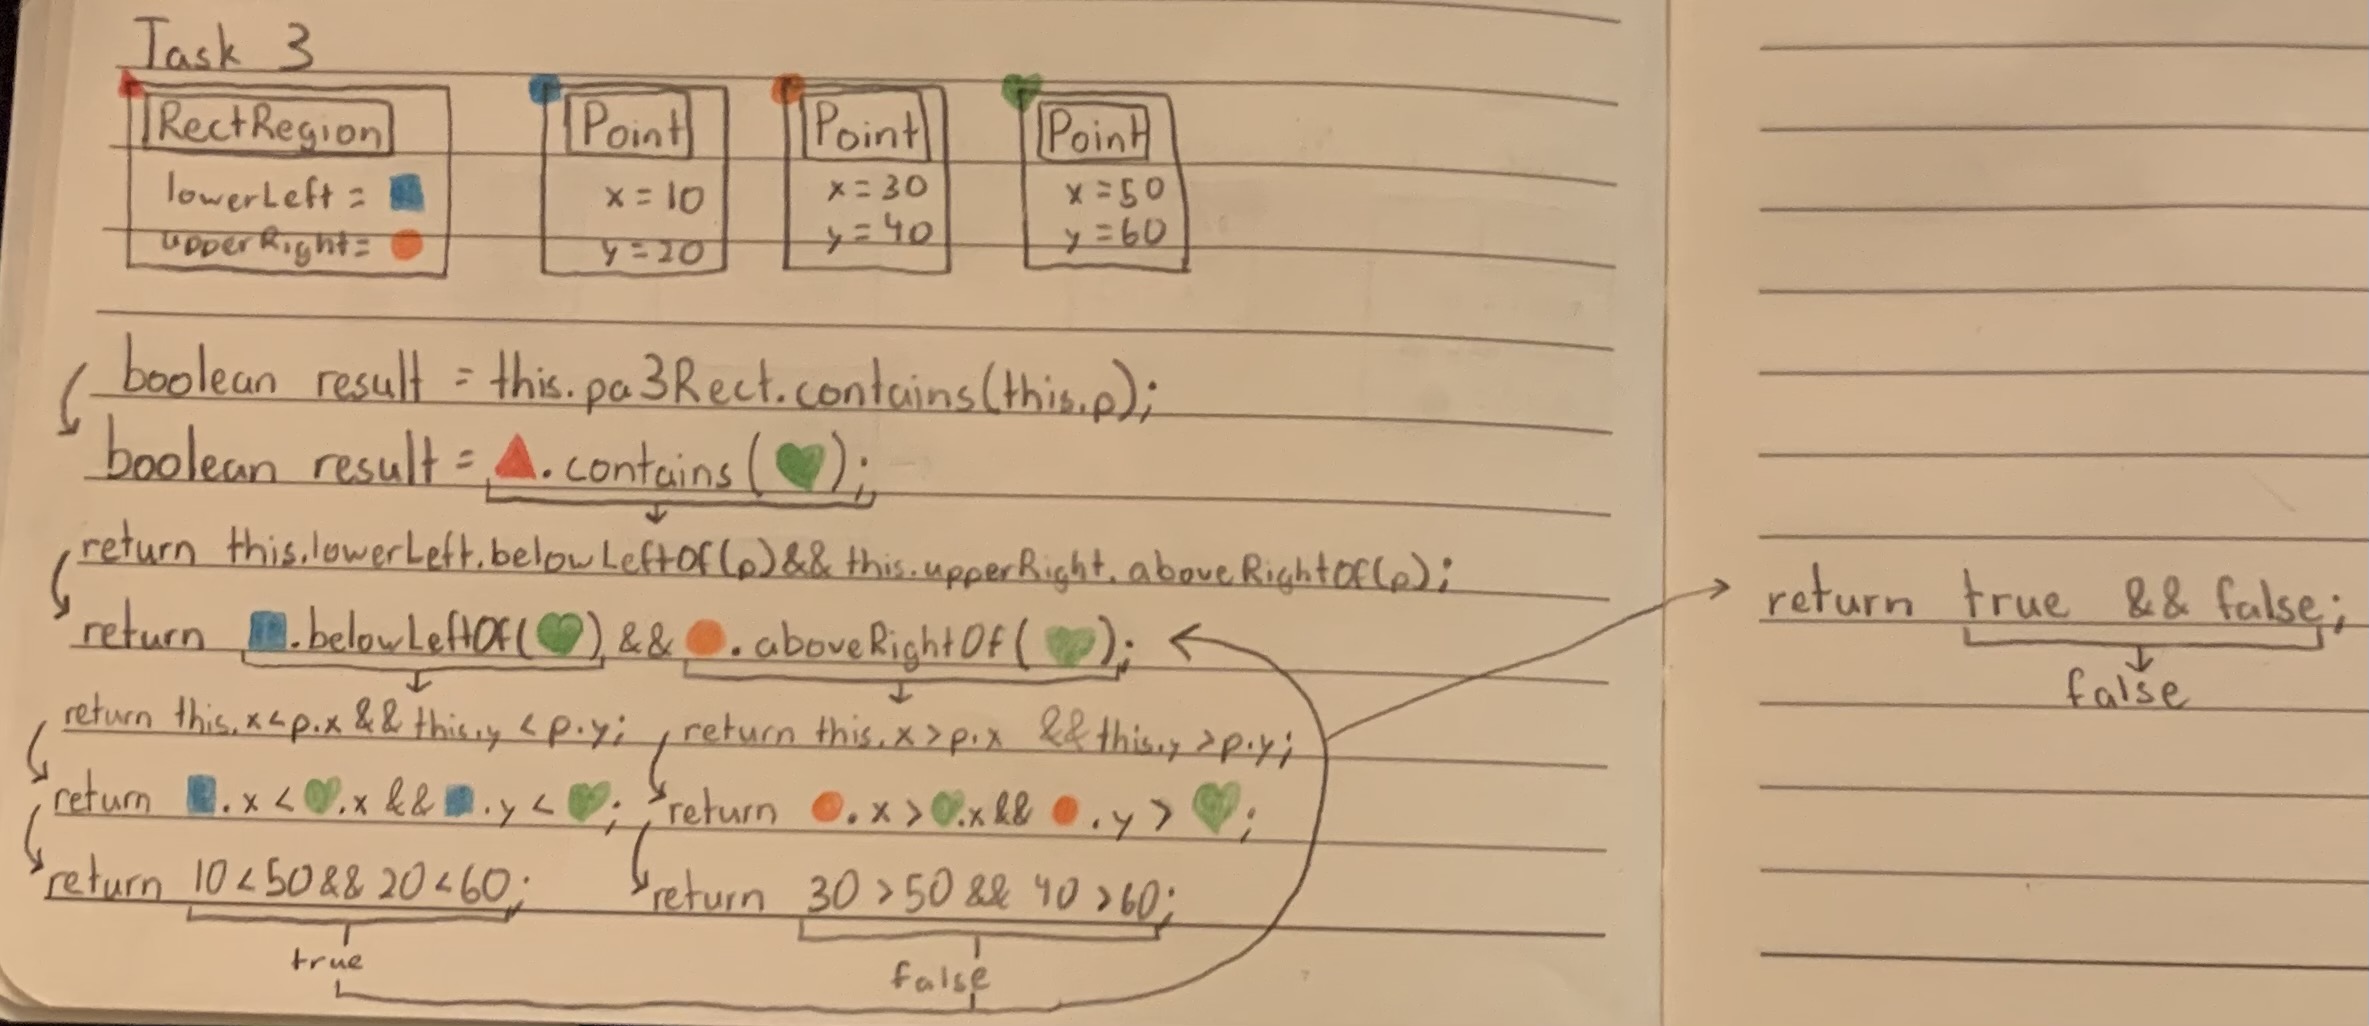 Task 3
RectRegion
lowerLeft =
upperRight =
Point
x = 10
y = 20
Point
x = 30
y = 40
Point
x = 50
y = 60
boolean result = this.pa3Rect.contains(this.p);
boolean result = .contains( );
return this.lowerLeft.belowLeftOf(p) && this.upperRight.aboveRightOf(p);
return .belowLeftOf( ) && .aboveRightOf( );
return this.x < p.x && this.y < p.y;
return .x < .x && .y < ;
return 10 < 50 && 20 < 60;
true
return this.x > p.x && this.y > p.y;
return .x > .x && .y > ;
return 30 > 50 && 40 > 60;
false
return true && false;
false